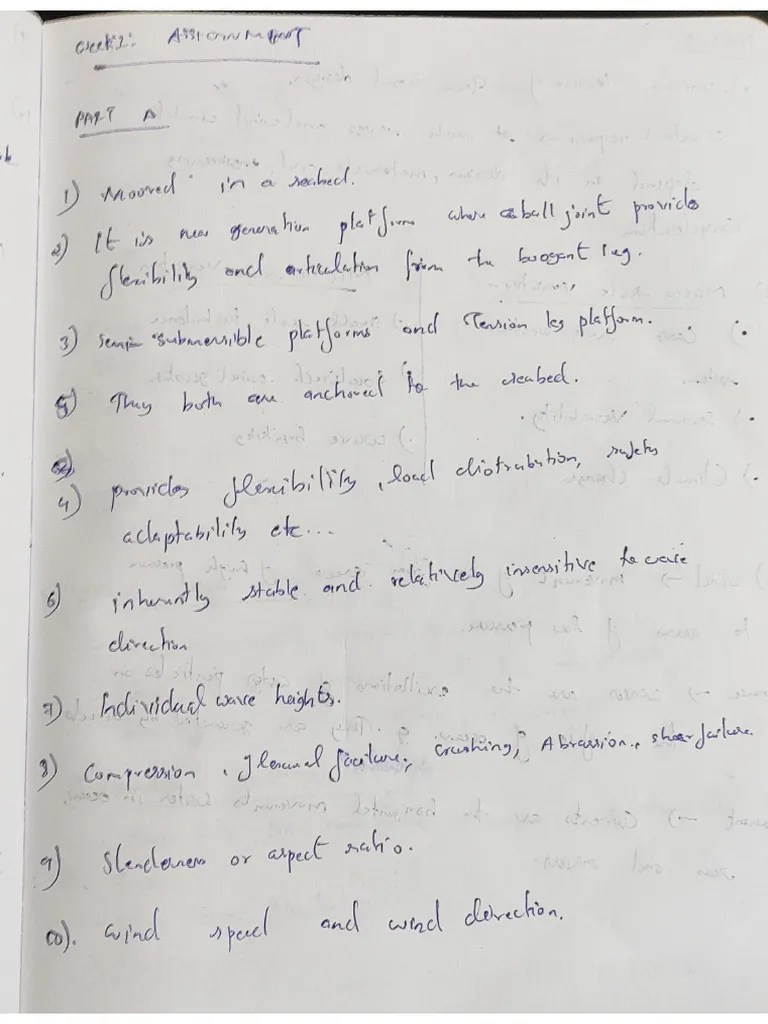 Week 2: ASSIGNMENT
PART A
1) Moored in a seabed.
2) It is new generation platform where a ball joint provides
flexibility and articulation from the buoyant leg.
3) Semi-submersible platforms and Tension leg platform.
5) They both are anchored to the seabed.
4) provides flexibility, load distrubution, safety
adaptability etc...
6) inheruntly stable and relatively insensitive to wave
direction
7) Individual wave heights.
8) Compression, flexural failure, crushing, Abrassion, shear failure.
9) Slenderness or aspect ratio.
10). wind speed and wind direction.